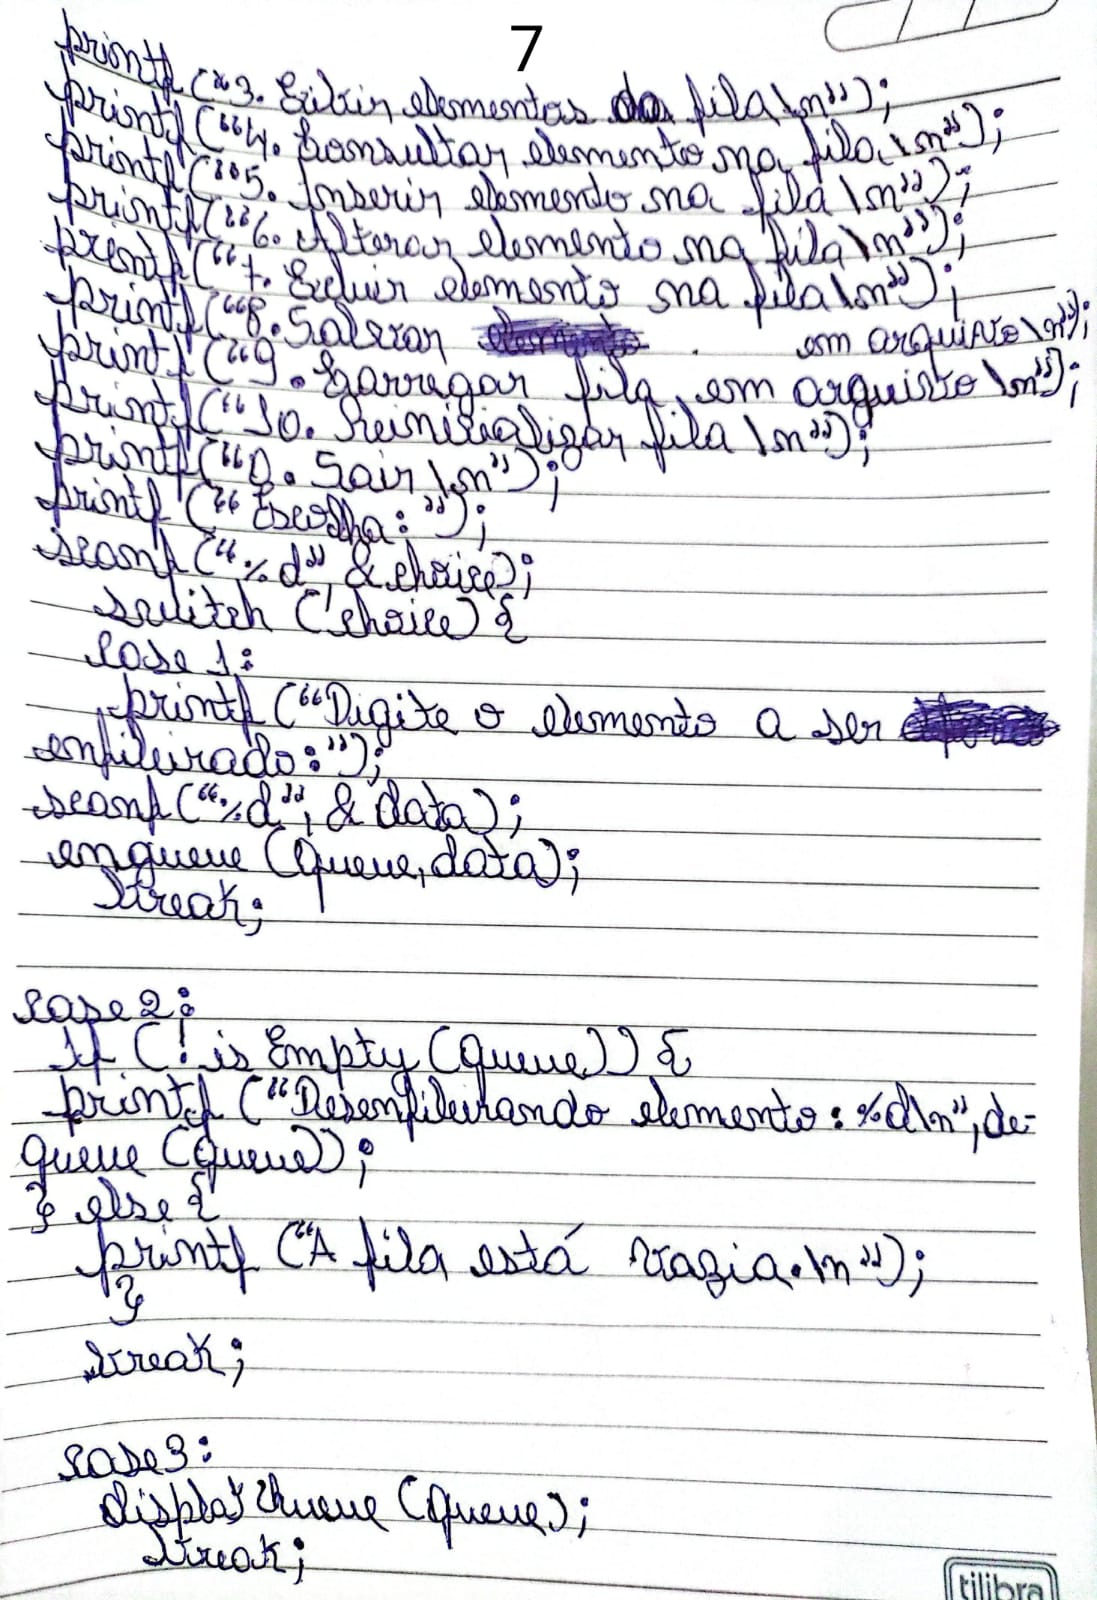 7
printf("3. Exibir elementos da fila\n");
printf("4. Consultar elemento na fila\n");
printf("5. Inserir elemento na fila\n");
printf("6. Alterar elemento na fila\n");
printf("7. Excluir elemento na fila\n");
printf("8. Salvar em arquivo\n");
printf("9. Carregar fila em arquivo\n");
printf("10. Reinicializar fila\n");
printf("0. Sair\n");
printf("Escolha: ");
scanf("%d", &choice);
switch (choice) {
case 1:
printf("Digite o elemento a ser
enfileirado: ");
scanf("%d", &data);
enqueue (queue, data);
break;
case 2:
if (!isEmpty (queue)) {
printf ("Desenfileirando elemento: %d\n", de-
queue (queue));
} else {
printf ("A fila está vazia.\n");
}
break;
case 3:
displayQueue (queue);
break;
tilibra